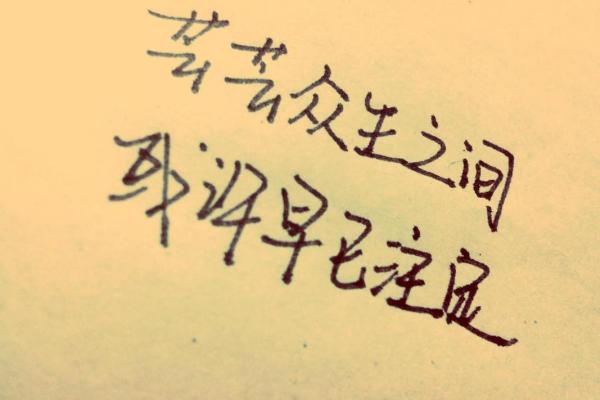 芸芸众生之间
或许早已注定